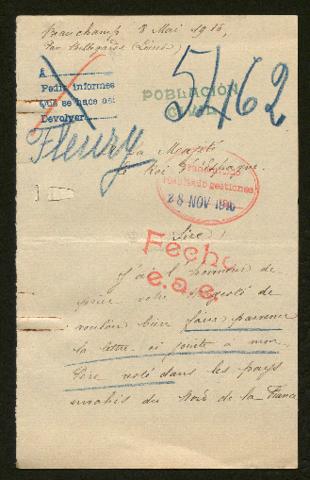 Beauchamp 8 Mai 1916,
Par Bellegarde (Loiret)
A
Pedir informes
Que se hace así
Devolver
POBLACIÓN
CIVIL
5/162
Fleury
Sa Majesté
le Roi d'Espagne
resultado gestiones
28 NOV 1916
Sire!
Fecho
e.a.e.
J'ai l'honneur de
prier votre Majesté de
vouloir bien faire parvenir
la lettre ci jointe à mon
Père resté dans les pays
envahis du Nord de la France